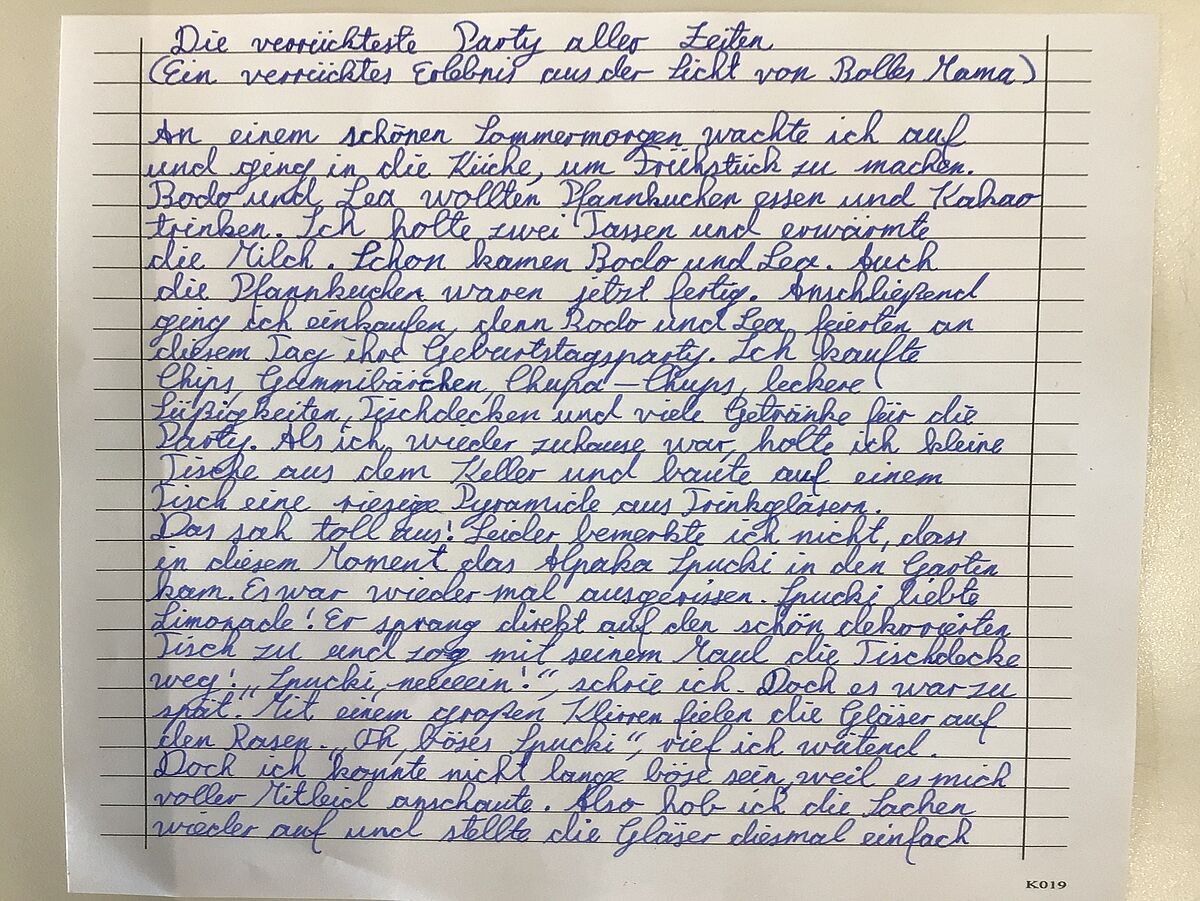 Die verrückteste Party aller Zeiten
(Ein verrücktes Erlebnis aus der Sicht von Bolles Mama)
An einem schönen Sommermorgen wachte ich auf
und ging in die Küche, um Frühstück zu machen.
Bodo und Lea wollten Pfannkuchen essen und Kakao
trinken. Ich holte zwei Tassen und erwärmte
die Milch. Schon kamen Bodo und Lea. Auch
die Pfannkuchen waren jetzt fertig. Anschließend
ging ich einkaufen, denn Bodo und Lea feierten an
diesem Tag ihre Geburtstagsparty. Ich kaufte
Chips, Gummibärchen, Chupa-Chups, leckere
Süßigkeiten, Tischdecken und viele Getränke für die
Party. Als ich wieder zuhause war, holte ich kleine
Tische aus dem Keller und baute auf einem
Tisch eine riesige Pyramide aus Trinkgläsern.
Das sah toll aus! Leider bemerkte ich nicht, dass
in diesem Moment das Alpaka Spucki in den Garten
kam. Es war wieder mal ausgerissen. Spucki liebte
Limonade! Er sprang direkt auf den schön dekorierten
Tisch zu und zog mit seinem Maul die Tischdecke
weg! „Spucki, neeeein!“, schrie ich. Doch es war zu
spät. Mit einem großen Klirren fielen die Gläser auf
den Rasen. „Oh, böses Spucki“, rief ich wütend.
Doch ich konnte nicht lange böse sein, weil es mich
voller Mitleid anschaute. Also hob ich die Sachen
wieder auf und stellte die Gläser diesmal einfach
K019